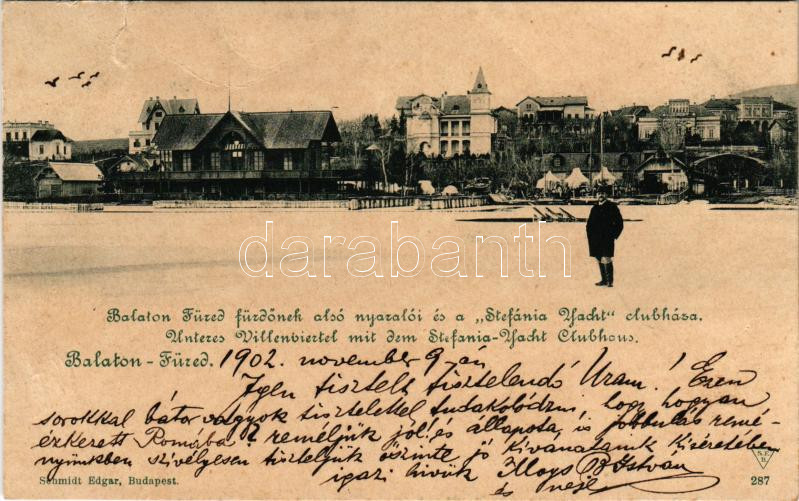 darabanth
Balaton Füred fürdőnek alsó nyaralói és a „Stefánia Yacht" clubháza.
Unteres Villenviertel mit dem Stefania-Yacht Clubhous.
Balaton-Füred. 1902. november 9-án
Igen tisztelt tisztelendő Uram! Ezen
sorokkal bátor vagyok tisztelettel tudakolódzni, hogy hogyan
érkezett Romába? reméljük jól! és állapota is jobbulás remé-
nyünkben szívélyesen tiszteljük őszinte jó kívánataink kíséretében
igazi hívük Illoys B István
és neje
Schmidt Edgar, Budapest.
S.E.
B.
287